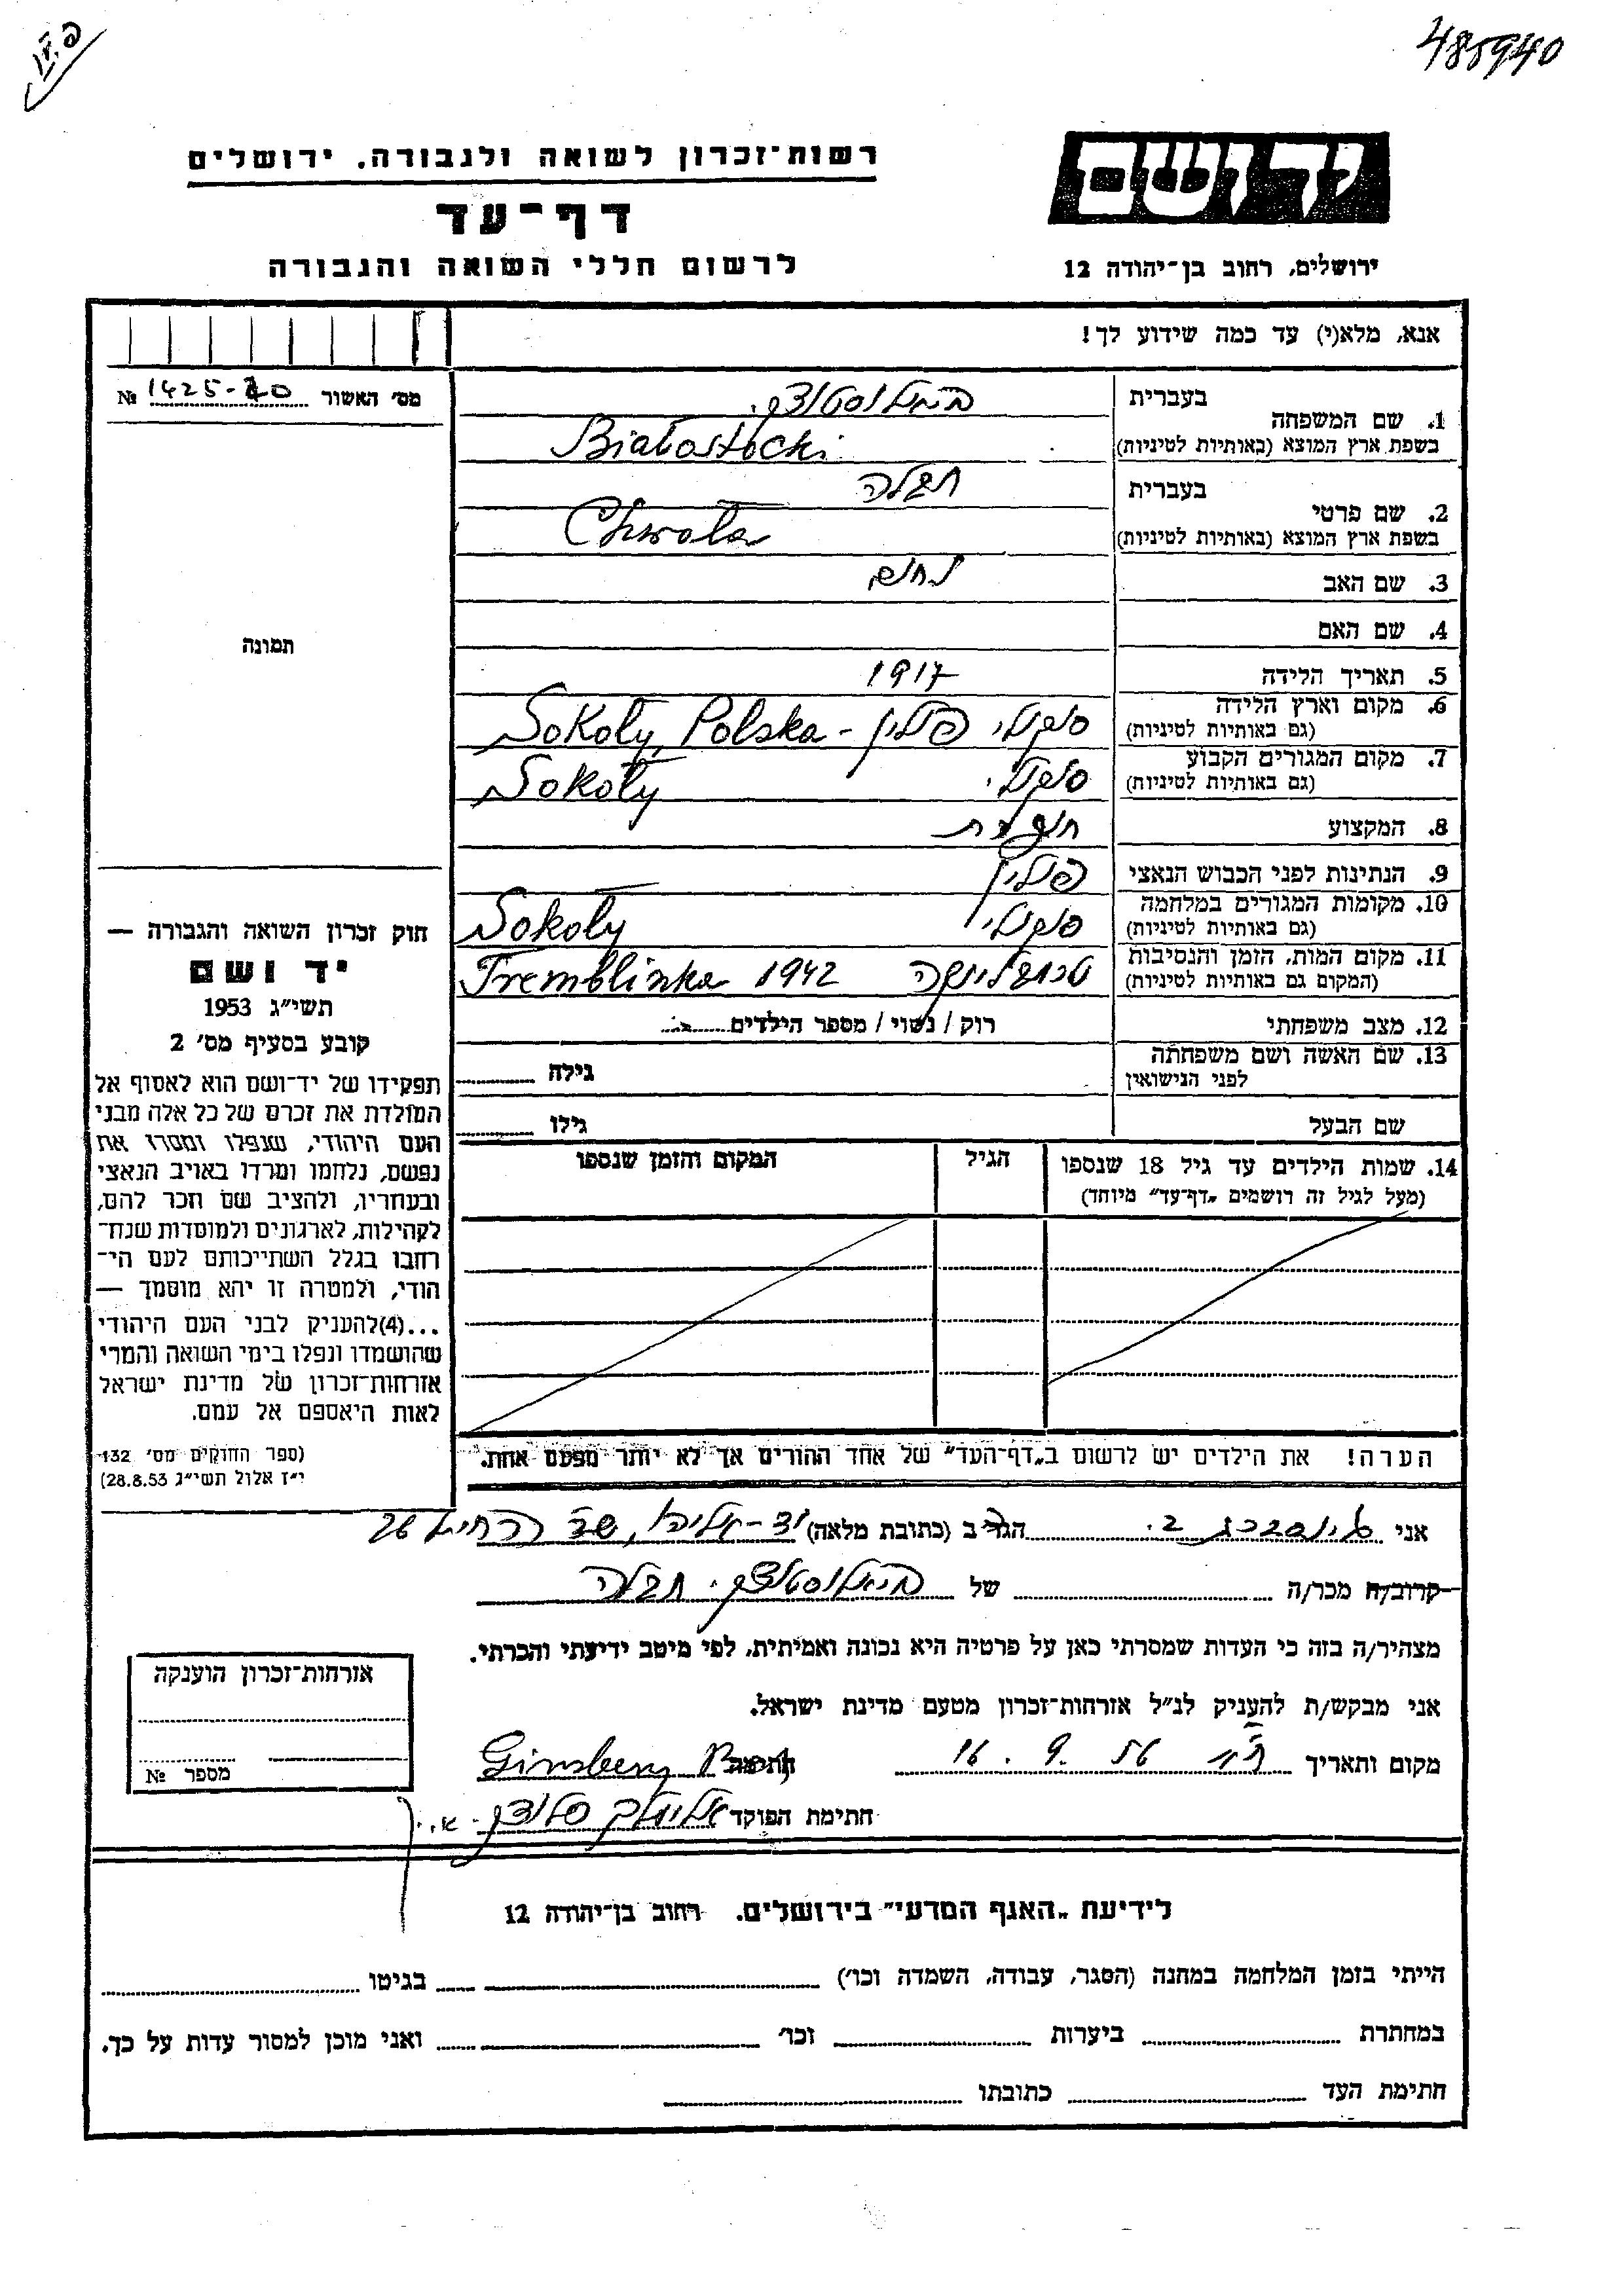 485940
יד ושם
רשות־זכרון לשואה ולגבורה. ירושלים
דף־עד
לרשום חללי השואה והגבורה
ירושלים, רחוב בן־יהודה 12
אנא, מלא(י) עד כמה שידוע לך!
מס׳ האשור № 1425-20
1. שם המשפחה
בעברית ביאלוסטוצקי
בשפת ארץ המוצא (באותיות לטיניות) Białostocki
2. שם פרטי
בעברית חבלה
בשפת ארץ המוצא (באותיות לטיניות) Chwała
3. שם האב נחום
4. שם האם
5. תאריך הלידה 1917
6. מקום וארץ הלידה (גם באותיות לטיניות) סוקולי פולין - Sokoły, Polska
7. מקום המגורים הקבוע (גם באותיות לטיניות) סוקולי Sokoły
8. המקצוע
9. הנתינות לפני הכבוש הנאצי פולין
10. מקומות המגורים במלחמה (גם באותיות לטיניות) סוקולי Sokoły
11. מקום המות, הזמן והנסיבות (המקום גם באותיות לטיניות) טרמבלינקה 1942 Tremblinka
12. מצב משפחתי רוק / נשוי / מספר הילדים
13. שם האשה ושם משפחתה לפני הנישואין גילה
שם הבעל גילו
14. שמות הילדים עד גיל 18 שנספו
(מעל לגיל זה רושמים „דף־עד״ מיוחד)
הגיל
המקום והזמן שנספו
הערה! את הילדים יש לרשום ב„דף־העד״ של אחד ההורים אך לא יותר מפעם אחת.
תמונה
חוק זכרון השואה והגבורה —
יד ושם
תשי״ג 1953
קובע בסעיף מס׳ 2
תפקידו של יד־ושם הוא לאסוף אל
המולדת את זכרם של כל אלה מבני
העם היהודי, שנפלו ומסרו את
נפשם, נלחמו ומרדו באויב הנאצי
ובעוזריו, ולהציב שם וזכר להם,
לקהילות, לארגונים ולמוסדות שנח־
רבו בגלל השתייכותם לעם הי־
הודי, ולמטרה זו יהא מוסמך —
...(4)להעניק לבני העם היהודי
שהושמדו ונפלו בימי השואה והמרי
אזרחות־זכרון של מדינת ישראל
לאות היאספם אל עמם.
(ספר החוקים מס׳ 132
י״ז אלול תשי״ג 28.8.53)
אני גינסברג ב. הגר ב (כתובת מלאה) יד-אליהו,
קרוב/ה מכר/ה של ביאלוסטוצקי חבלה
מצהיר/ה בזה כי העדות שמסרתי כאן על פרטיה היא נכונה ואמיתית, לפי מיטב ידיעתי והכרתי.
אני מבקש/ת להעניק לנ״ל אזרחות־זכרון מטעם מדינת ישראל.
מקום ותאריך ת״א 16. 9. 56 חתימה Ginsberg
חתימת הפוקד
אזרחות־זכרון הוענקה
מספר №
לידיעת „האגף המדעי״ בירושלים. רחוב בן־יהודה 12
הייתי בזמן המלחמה במחנה (הסגר, עבודה, השמדה וכו׳) בגיטו
במחתרת ביערות וכו׳ ואני מוכן למסור עדות על כך.
חתימת העד כתובתו